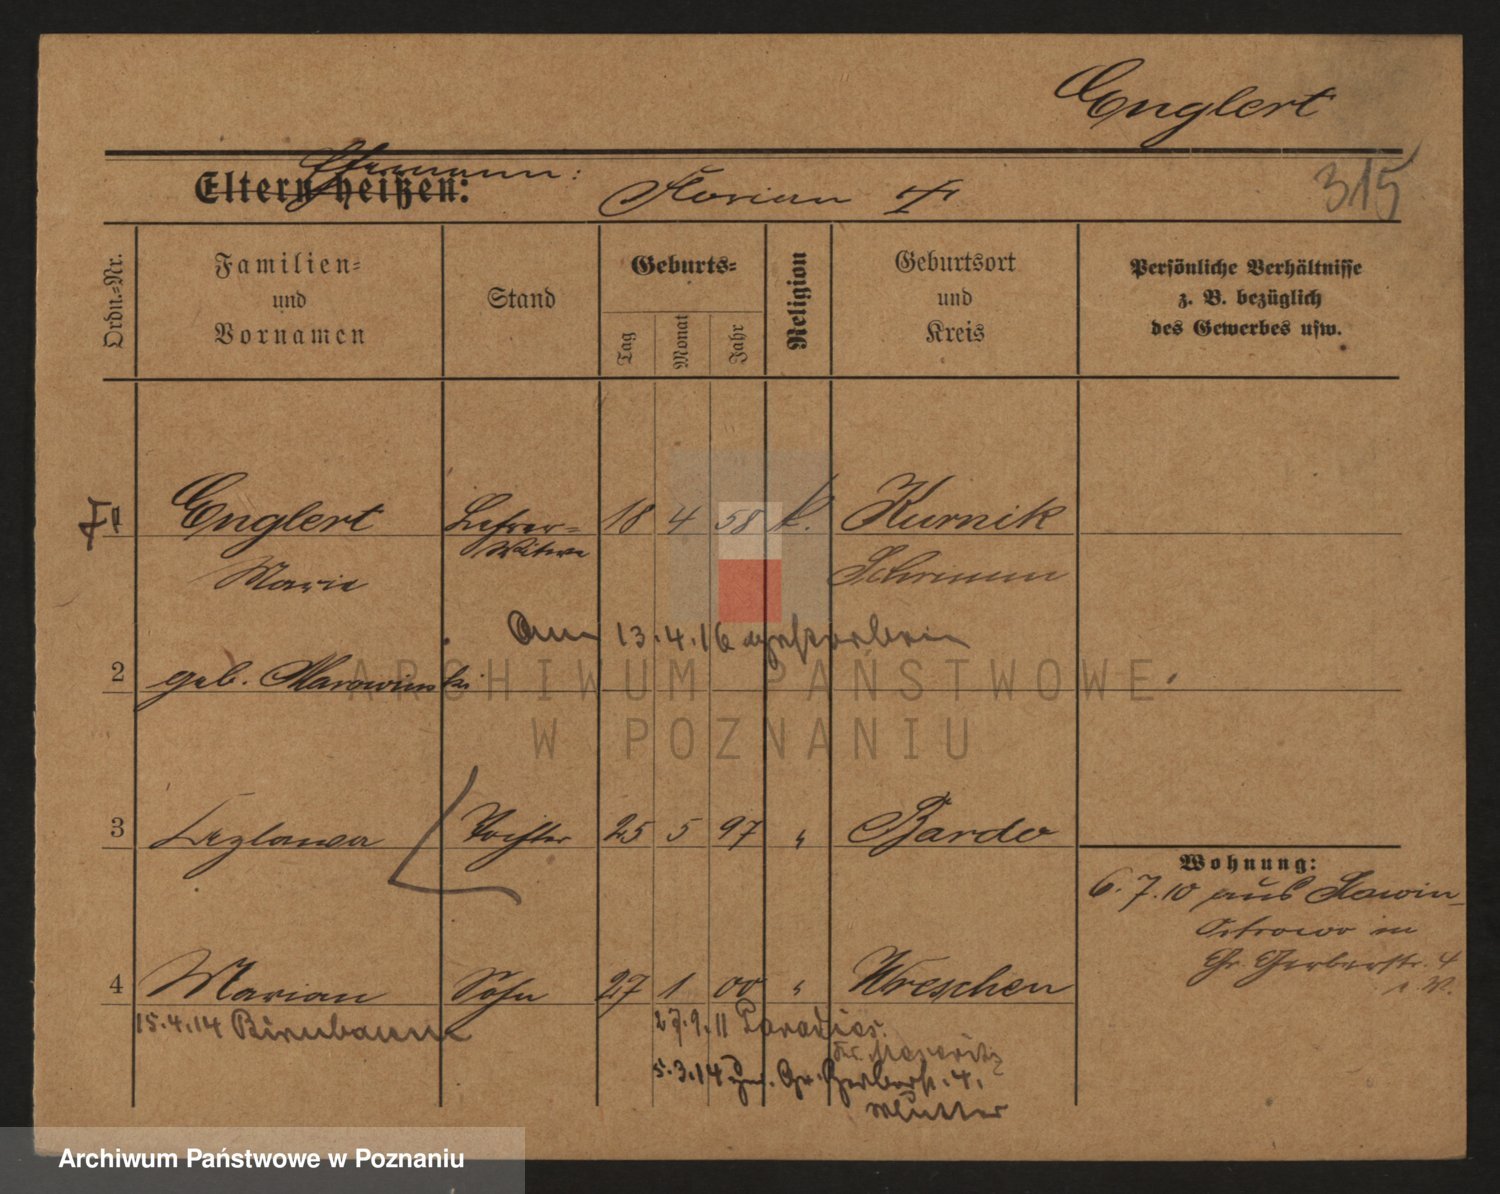 Englert
315
Eltern heißen: Ehemann: Florian †
Ordn.-Nr.
Familien-
und
Vornamen
Stand
Geburts-
Tag
Monat
Jahr
Religion
Geburtsort
und
Kreis
Persönliche Verhältnisse
z. B. bezüglich
des Gewerbes usw.
† 1 Englert Lehrer- 18 4 58 k. Kurnik
Witwe
Marie Schrimm
Am 13.4.16 gestorben
2 geb.
3 Tochter 25 5 97 " Bardo
Wohnung:
6.7.10 aus
Ostrowo in
Gr. Gerberstr. 4
4 Marian Sohn 27 1 00 " Wreschen
15.4.14 Birnbaum
27.9.11 Paradies
Kr. Meseritz
5.3.14 Gr. Gerberstr. 4.
Mutter
ARCHIWUM PAŃSTWOWE
W POZNANIU
Archiwum Państwowe w Poznaniu